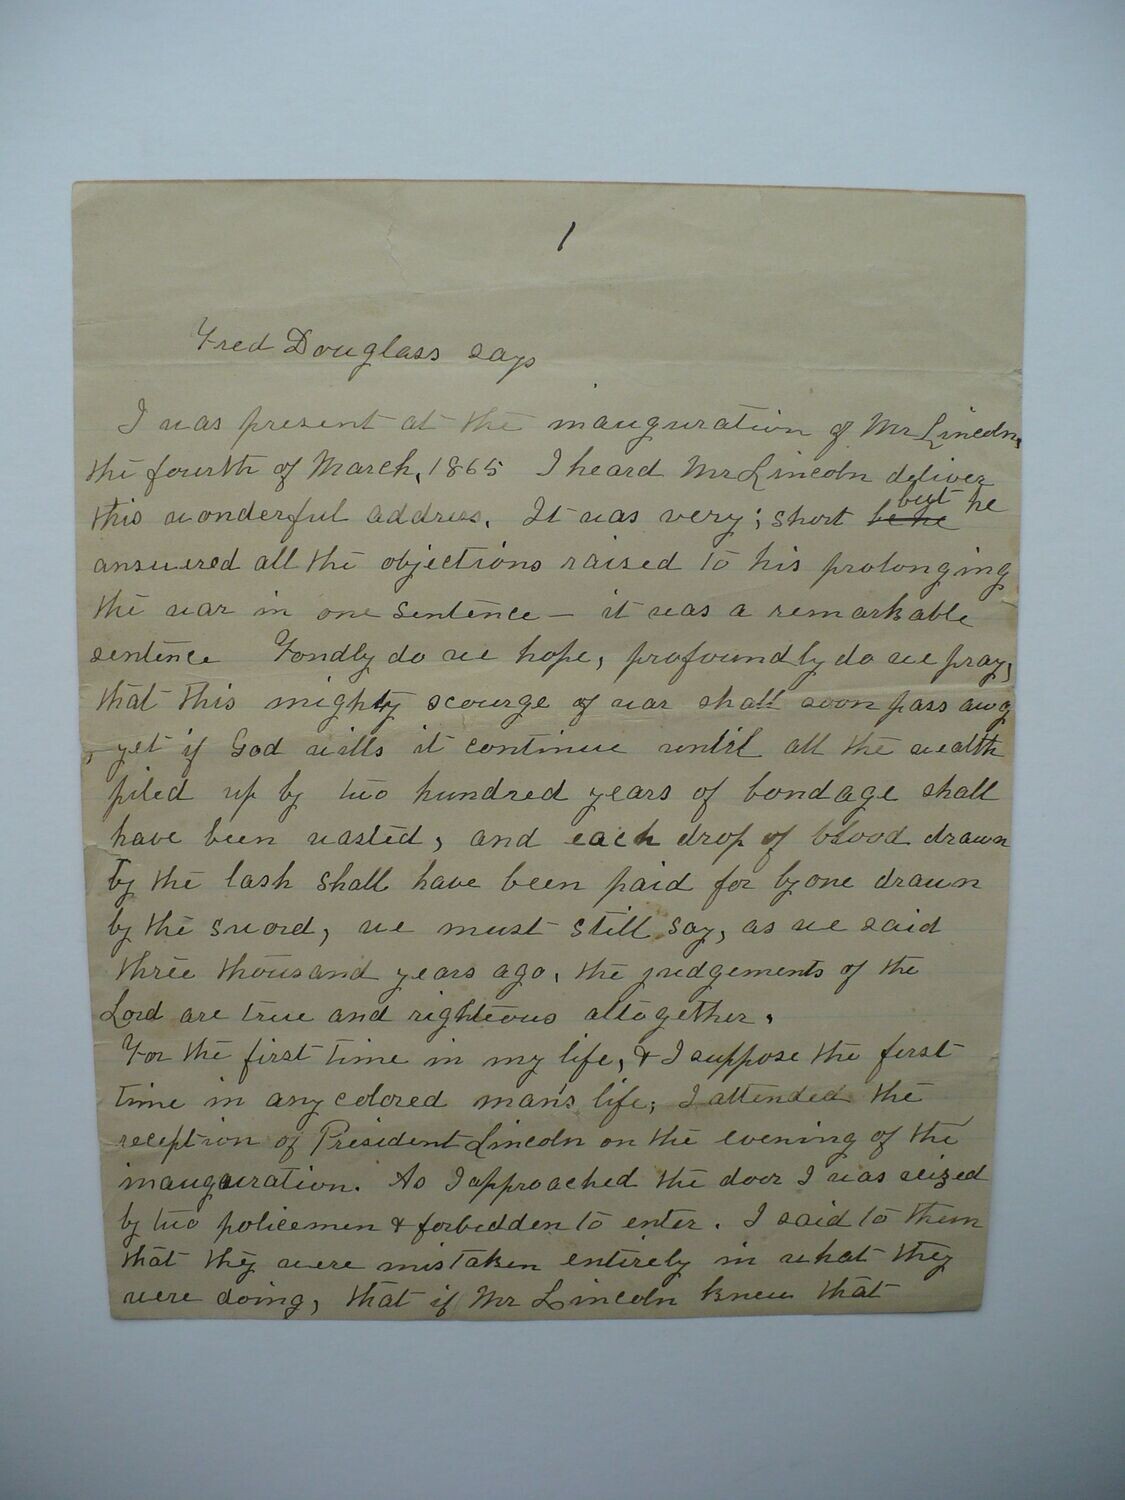 1
Fred Douglass says
I was present at the inauguration of Mr Lincoln,
the fourth of March, 1865 I heard Mr Lincoln deliver
this wonderful address. It was very; short be he but he
answered all the objections raised to his prolonging
the war in one sentence – it was a remarkable
sentence Fondly do we hope, profoundly do we pray,
that this mighty scourge of war shall soon pass away
, yet if God wills it continue until all the wealth
piled up by two hundred years of bondage shall
have been wasted, and each drop of blood drawn
by the lash shall have been paid for by one drawn
by the sword, we must still say, as we said
three thousand years ago, the judgements of the
Lord are true and righteous altogether.
For the first time in my life, & I suppose the first
time in any colored man's life, I attended the
reception of President Lincoln on the evening of the
inauguration. As I approached the door I was seized
by two policemen & forbidden to enter. I said to them
that they were mistaken entirely in what they
were doing, that if Mr Lincoln knew that